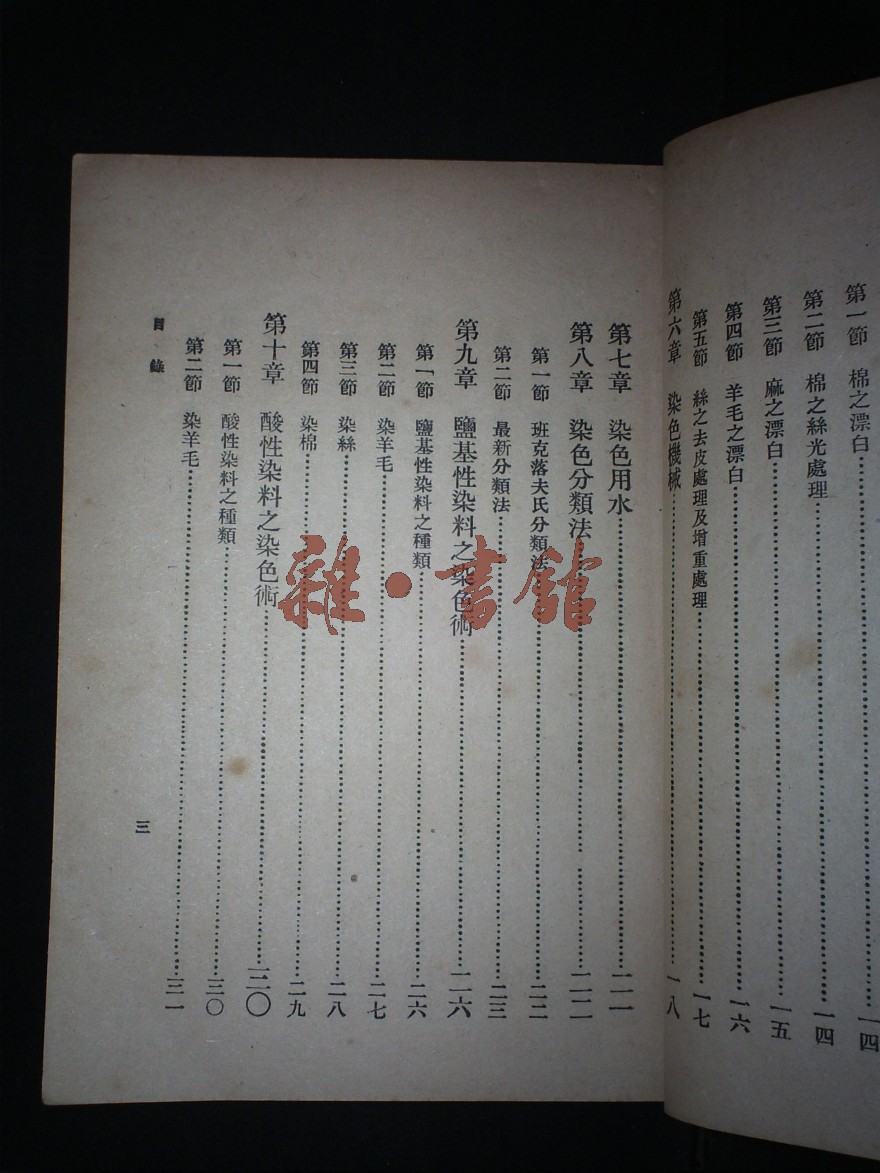 第一節 棉之漂白 一四
第二節 棉之絲光處理 一四
第三節 麻之漂白 一五
第四節 羊毛之漂白 一六
第五節 絲之去皮處理及增重處理 一七
第六章 染色機械 一八
第七章 染色用水 二一
第八章 染色分類法 二二
第一節 班克落夫氏分類法 二二
第二節 最新分類法 二三
第九章 鹽基性染料之染色術 二六
第一節 鹽基性染料之種類 二六
第二節 染羊毛 二七
第三節 染絲 二八
第四節 染棉 二九
第十章 酸性染料之染色術 三〇
第一節 酸性染料之種類 三〇
第二節 染羊毛 三一
目錄
三
雜·書館